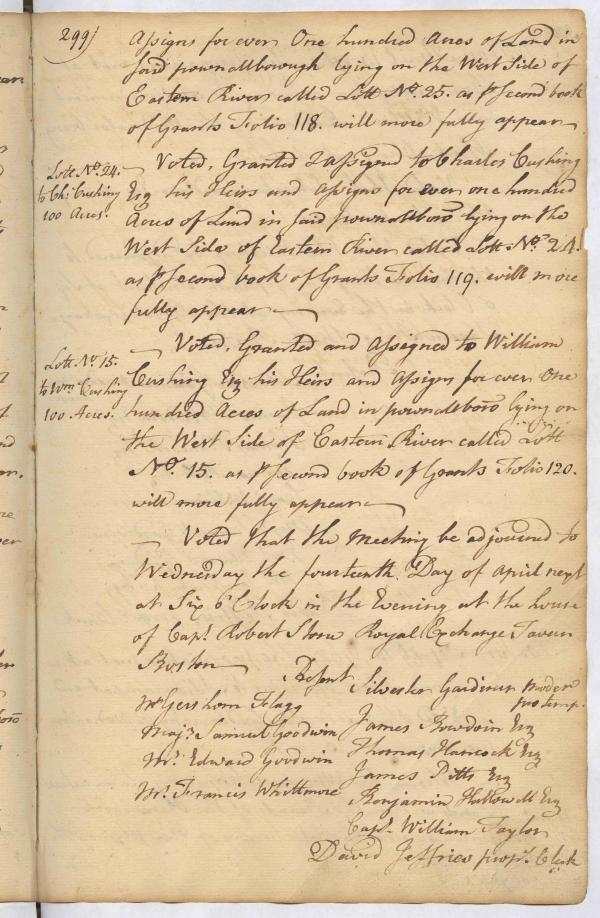 299)
Assigns for ever One hundred Acres of Land in
said pownallborough lying on the West Side of
Eastern River called Lott No. 25. as pr Second book
of Grants Folio 118. will more fully appear
Lott No. 24.
to Chs Cushing
100 Acres.
Voted, Granted & assignd to Charles Cushing
Esq his Heirs and assigns for ever one hundred
Acres of Land in said pownallboro lying on the
West Side of Eastern River called Lott No. 24.
as pr Second book of Grants Folio 119. will more
fully appear
Lott No. 15.
to Wm Cushing
100 Acres.
Voted, Granted and assigned to William
Cushing Esq his Heirs and assigns for ever One
hundred Acres of Land in pownallboro lying on
the West Side of Eastern River called Lott
No. 15. as pr Second book of Grants Folio 120.
will more fully appear
Voted that the meeting be adjourned to
Wednesday the fourteenth Day of april next
at Six o'Clock in the Evening at the house
of Capt. Robert Stone Royal Exchange Tavern
Boston
Present
Silvester Gardiner moder
pro temp.
Mr Gershom Flagg
James Bowdoin Esq
Majr Samuel Goodwin
Thomas Hancock Esq
Mr. Edward Goodwin
James Pitts Esq
Mr. Francis Whittmore
Benjamin Hallowell Esq
Capt. William Taylor
David Jeffries propr. Clerk